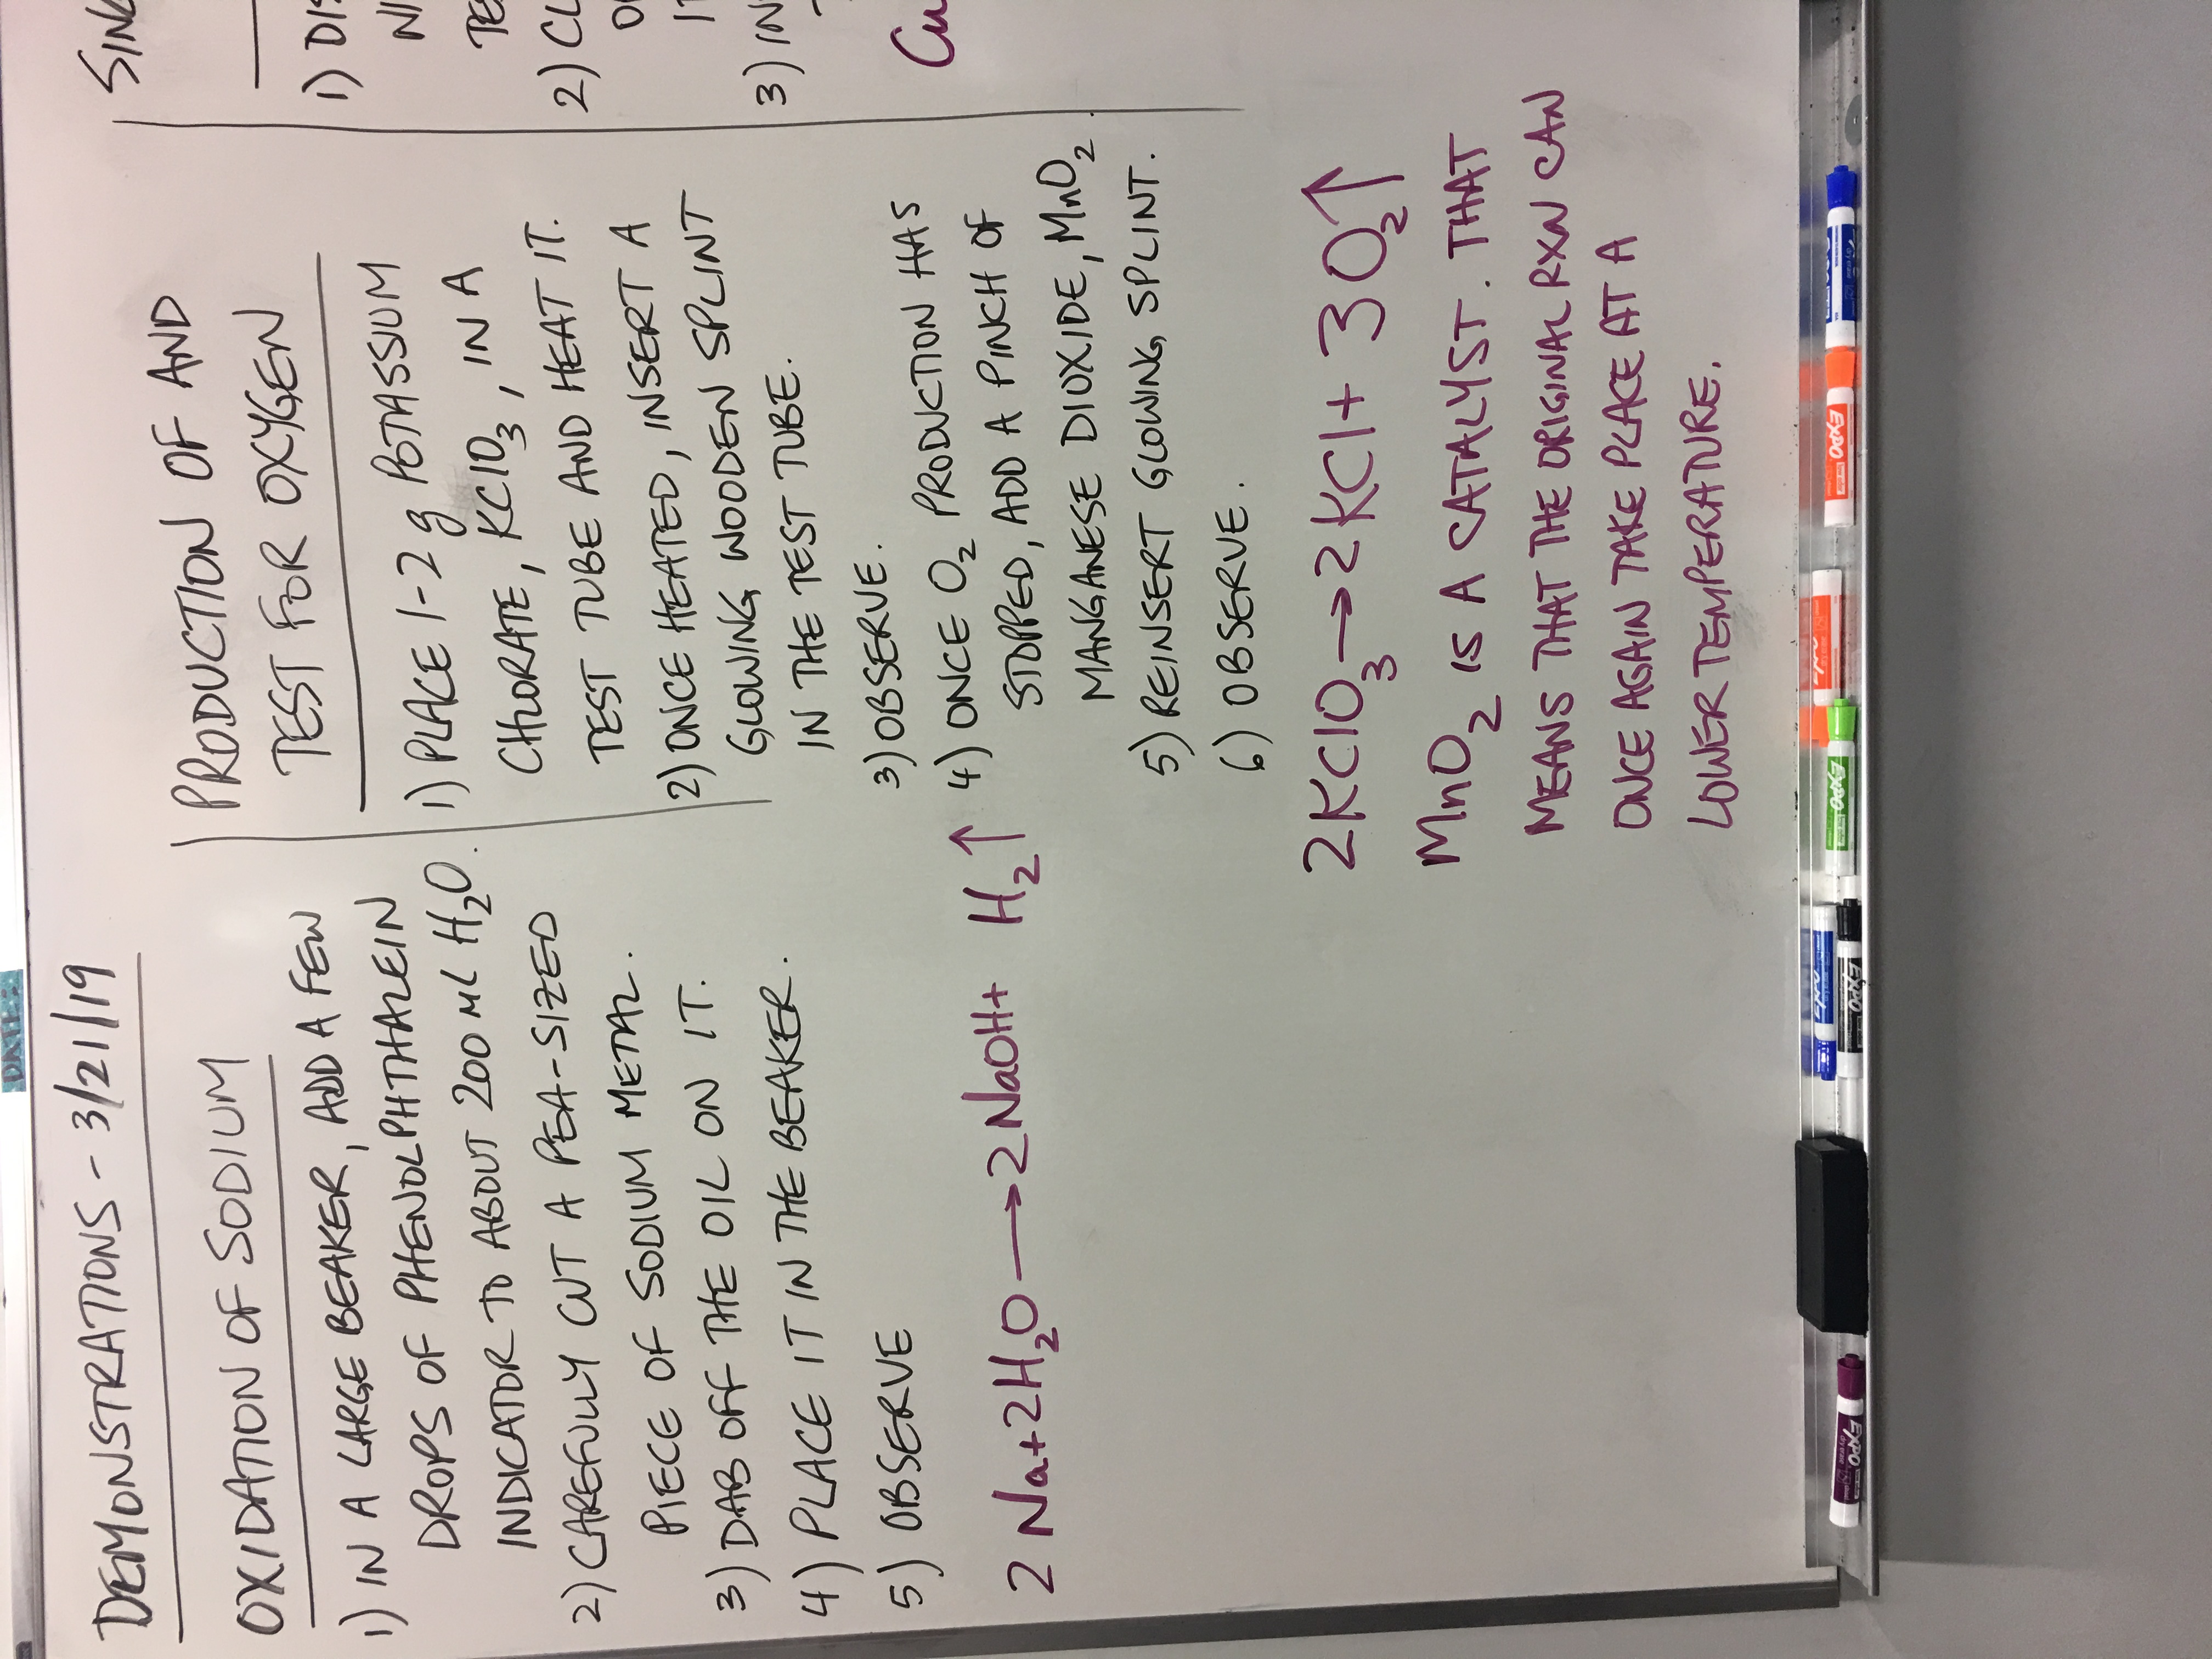 DATE:
DEMONSTRATIONS - 3/21/19
OXIDATION OF SODIUM
1) IN A LARGE BEAKER, ADD A FEW
DROPS OF PHENOLPHTHALEIN
INDICATOR TO ABOUT 200 mL H₂O.
2) CAREFULLY CUT A PEA-SIZED
PIECE OF SODIUM METAL.
3) DAB OFF THE OIL ON IT.
4) PLACE IT IN THE BEAKER.
5) OBSERVE
2 Na + 2H₂O → 2NaOH + H₂↑
PRODUCTION OF AND
TEST FOR OXYGEN
1) PLACE 1-2 g POTASSIUM
CHLORATE, KClO₃, IN A
TEST TUBE AND HEAT IT.
2) ONCE HEATED, INSERT A
GLOWING WOODEN SPLINT
IN THE TEST TUBE.
3) OBSERVE.
4) ONCE O₂ PRODUCTION HAS
STOPPED, ADD A PINCH OF
MANGANESE DIOXIDE, MnO₂.
5) REINSERT GLOWING SPLINT.
6) OBSERVE.
2KClO₃ → 2KCl + 3O₂↑
MnO₂ IS A CATALYST. THAT
MEANS THAT THE ORIGINAL RXN CAN
ONCE AGAIN TAKE PLACE AT A
LOWER TEMPERATURE.
SING
1) DIS
NI
TE
2) CL
3) IN
Cu
EXPO
EXPO
EXPO
EXPO